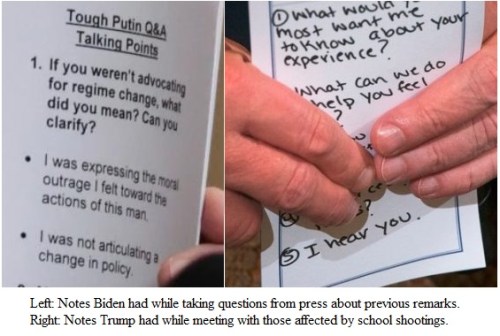 Tough Putin Q&A
Talking Points
1. If you weren't advocating
for regime change, what
did you mean? Can you
clarify?
• I was expressing the moral
outrage I felt toward the
actions of this man.
• I was not articulating a
change in policy.
① what would
most want me
to know about your
experience?
what can we do
help you feel
?
⑤ I hear you.
Left: Notes Biden had while taking questions from press about previous remarks.
Right: Notes Trump had while meeting with those affected by school shootings.